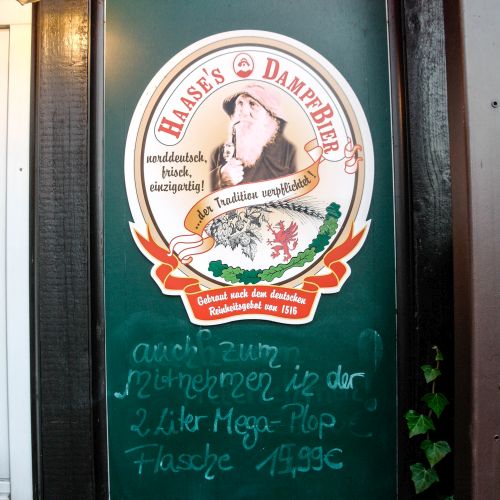 HAASE'S DAMPFBIER
norddeutsch,
frisch,
einzigartig!
...der Tradition verpflichtet!
Gebraut nach dem deutschen
Reinheitsgebot von 1516
auch zum
mitnehmen in der
2 Liter Mega-Plop
Flasche 19,99€